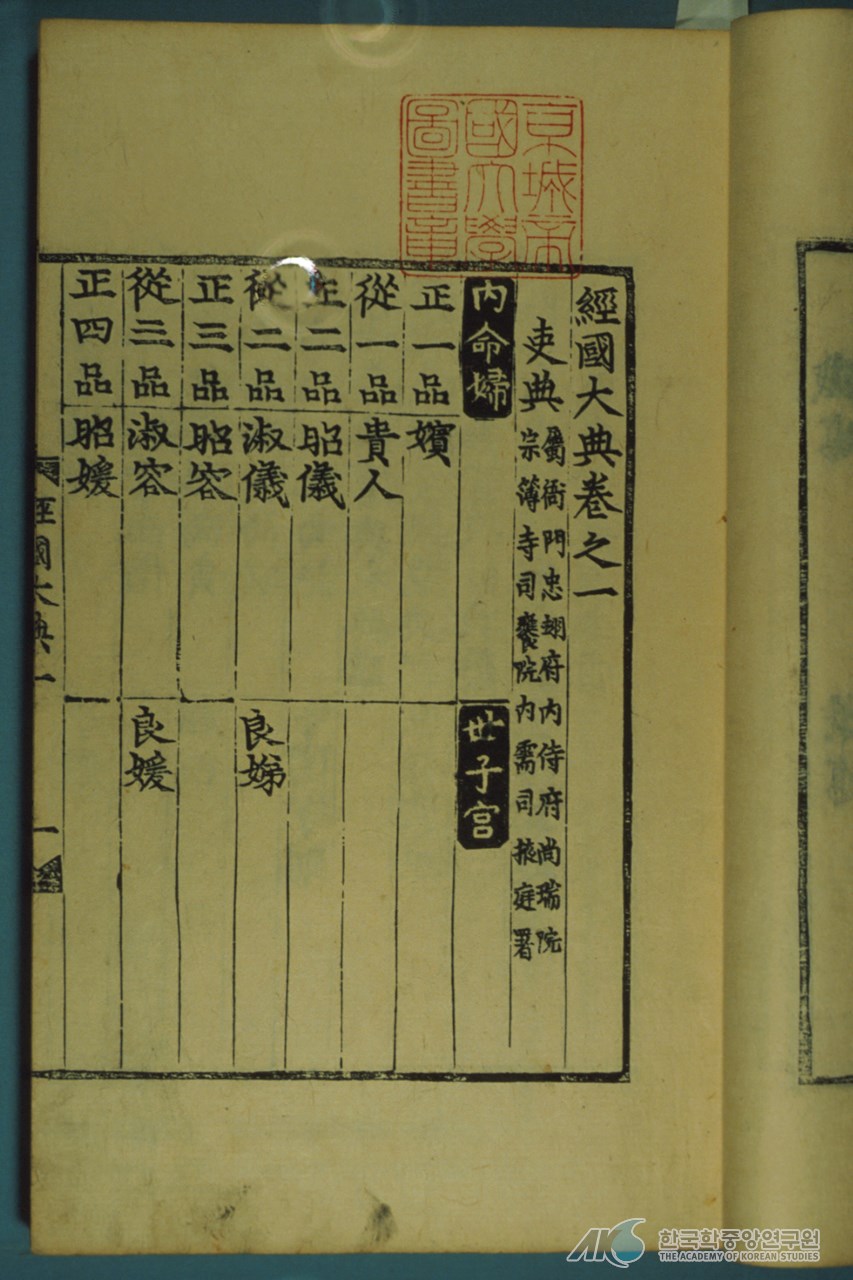 經國大典卷之一
吏典
屬衙門忠翊府內侍府尚瑞院
宗簿寺司饔院內需司掖庭署
內命婦 世子宮
正一品 嬪
從一品 貴人
正二品 昭儀
從二品 淑儀 良娣
正三品 昭容
從三品 淑容 良媛
正四品 昭媛
經國大典一 一
京城帝
國大學
圖書章
AKS 한국학중앙연구원
THE ACADEMY OF KOREAN STUDIES